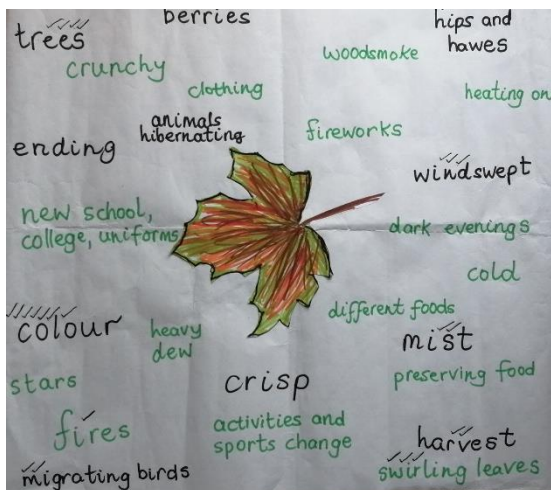 berries
trees
hips and
hawes
woodsmoke
crunchy
clothing
heating on
animals
hibernating
fireworks
ending
windswept
new school,
college, uniforms
dark evenings
cold
different foods
colour
heavy
dew
mist
stars
crisp
preserving food
fires
activities and
sports change
harvest
swirling leaves
migrating birds